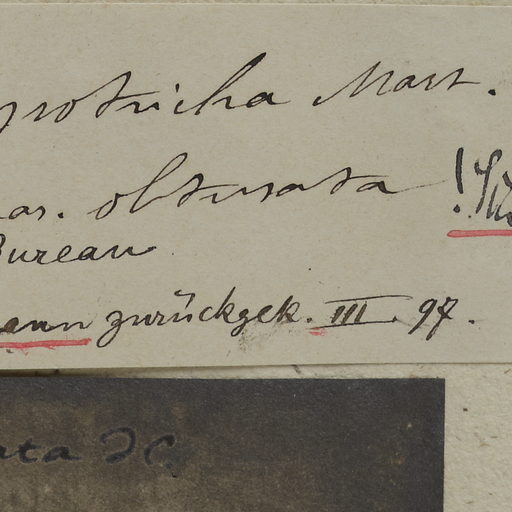 protricha Mart.
ar. obtusata !
Bureau
ann zurückgek. III. 97.
ata DC